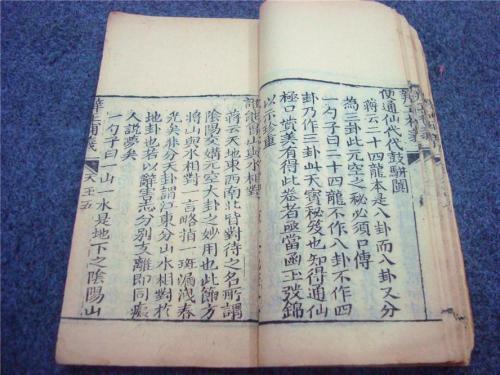 便通仙代代鼓駢闐
蔣云二十四龍本是八卦而八卦又分
為三卦此元空之秘必須口傳
一勺子曰二十四龍不作八卦不作四
卦乃作三卦此天寶秘笈也知得通仙
極口贊美有得此卷者亟當函玉發錦
以示珍重
認龍算山與水相對
蔣云天地東西南北皆對待之名所謂
陰陽交媾元空大卦之妙用也此節方
將山與水相對一言略指一斑漏洩春
光矣非分天卦謂江東分山水相對於
地卦也若以辭害志分別支離即同癡
人說夢矣
一勺子曰一山一水是地下之陰陽山